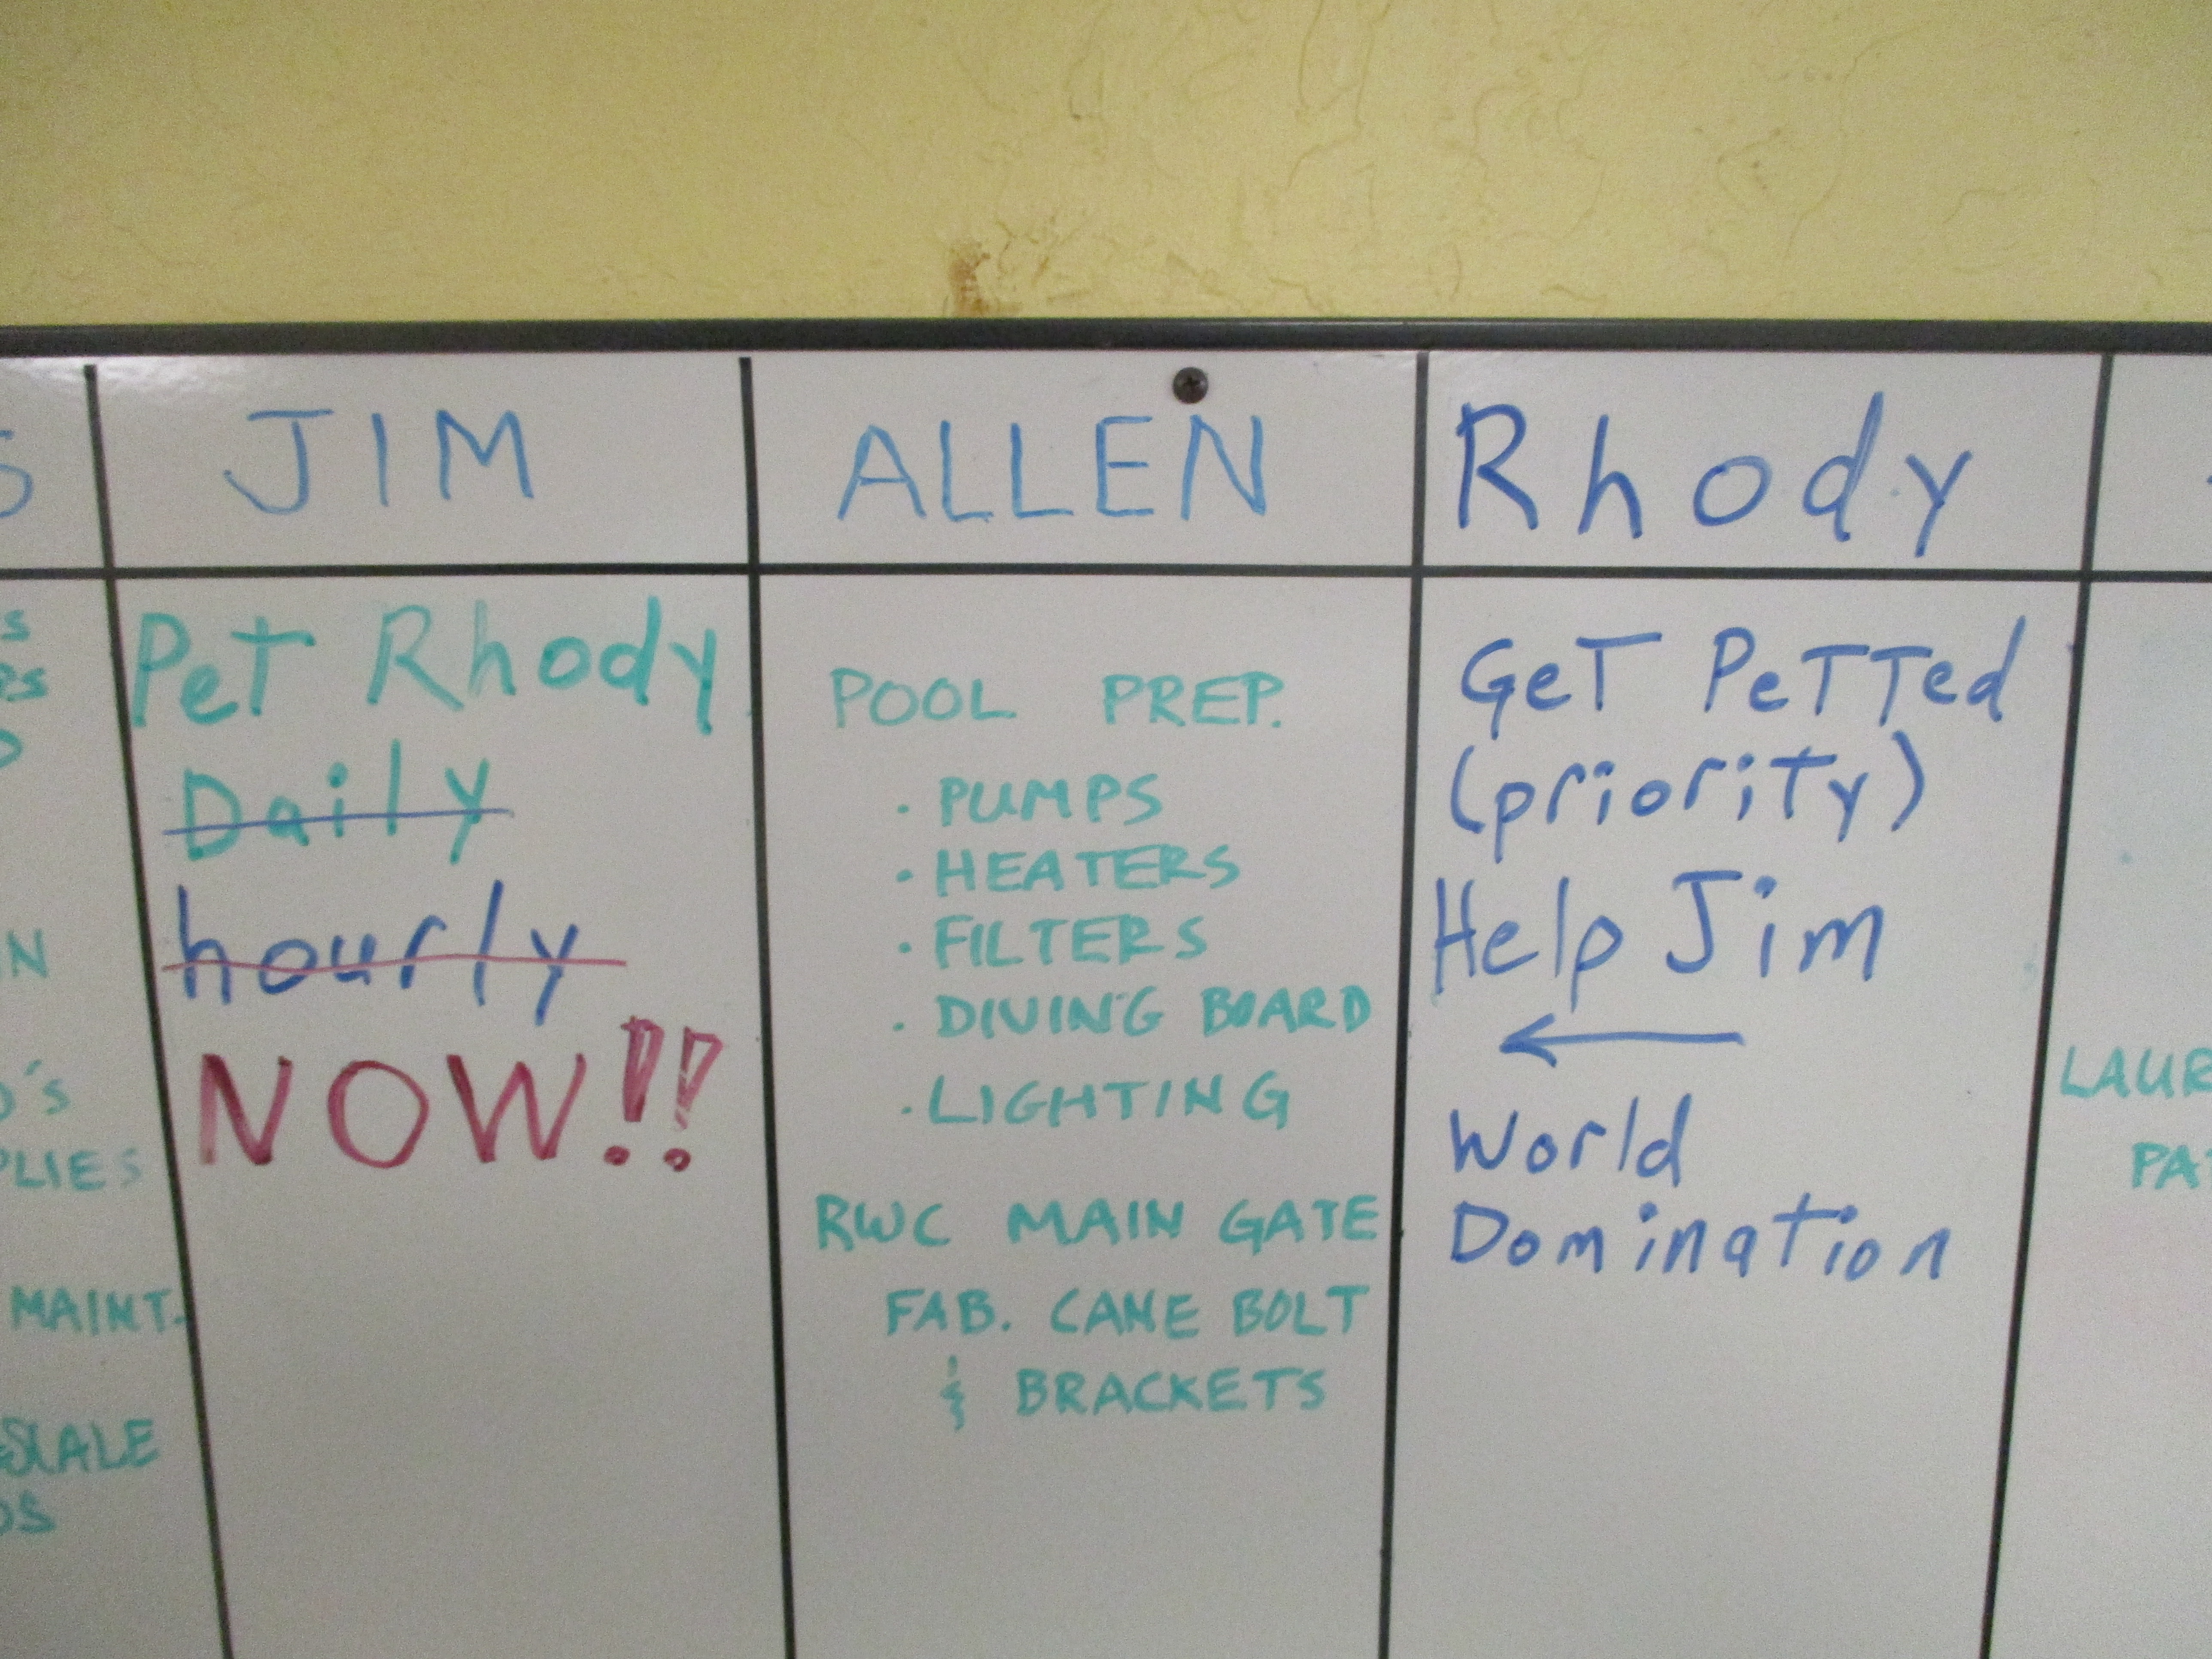 JIM
Pet Rhody
Daily
hourly
NOW!!
ALLEN
POOL PREP.
· PUMPS
· HEATERS
· FILTERS
· DIVING BOARD
· LIGHTING
RWC MAIN GATE
FAB. CANE BOLT
& BRACKETS
Rhody
GeT PeTTed
(prioriTy)
Help Jim
←
World
Domination
MAINT.